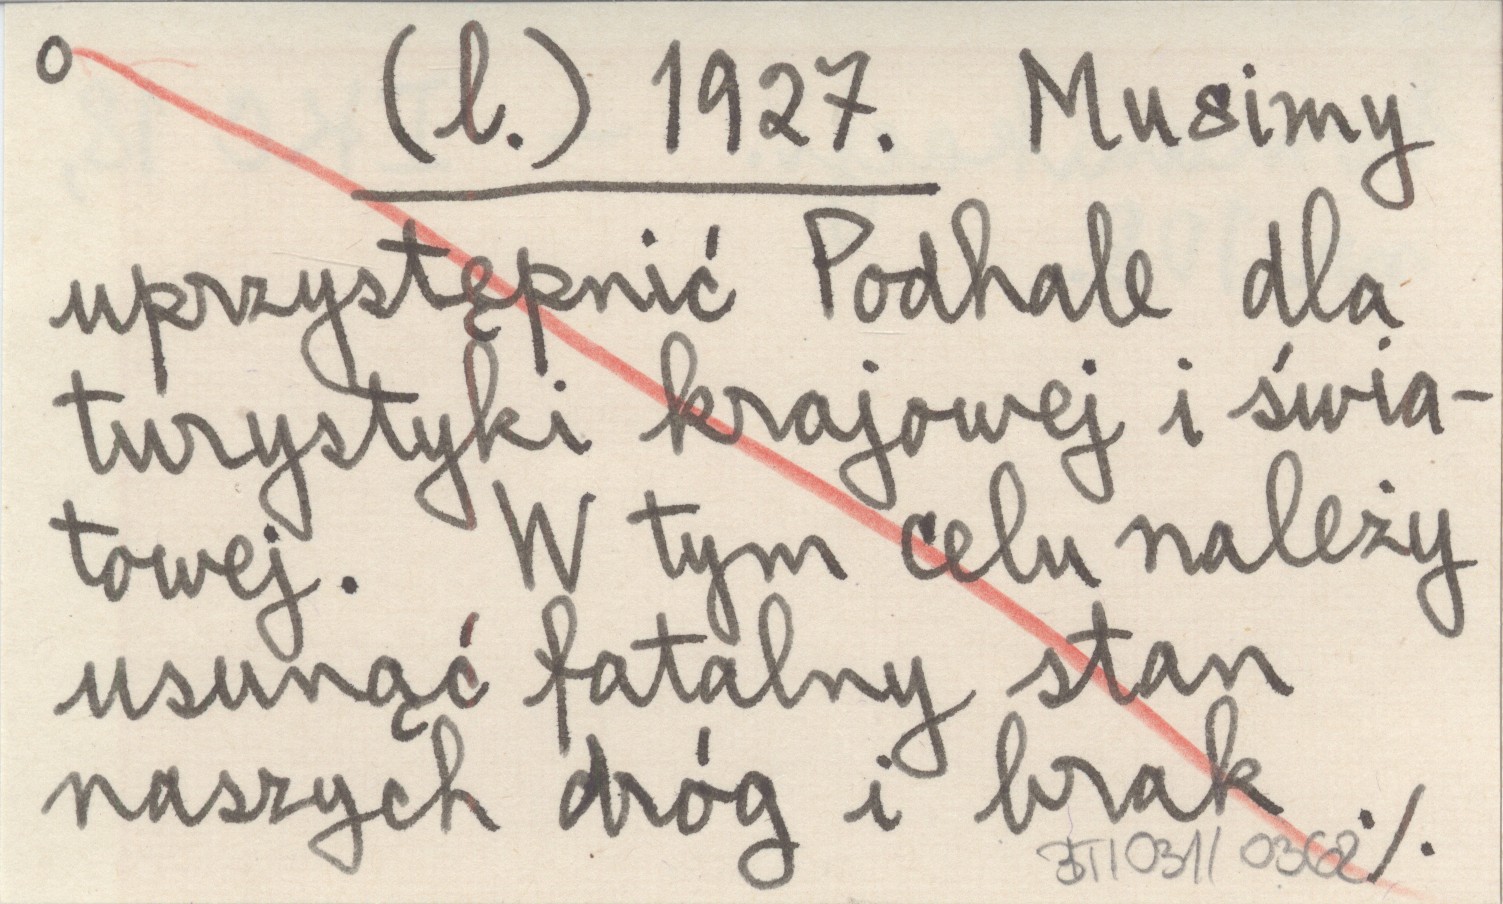 o (l.) 1927. Musimy
uprzystępnić Podhale dla
turystyki krajowej i świa-
towej. W tym celu należy
usunąć fatalny stan
naszych dróg i brak ./.
031/ 0362